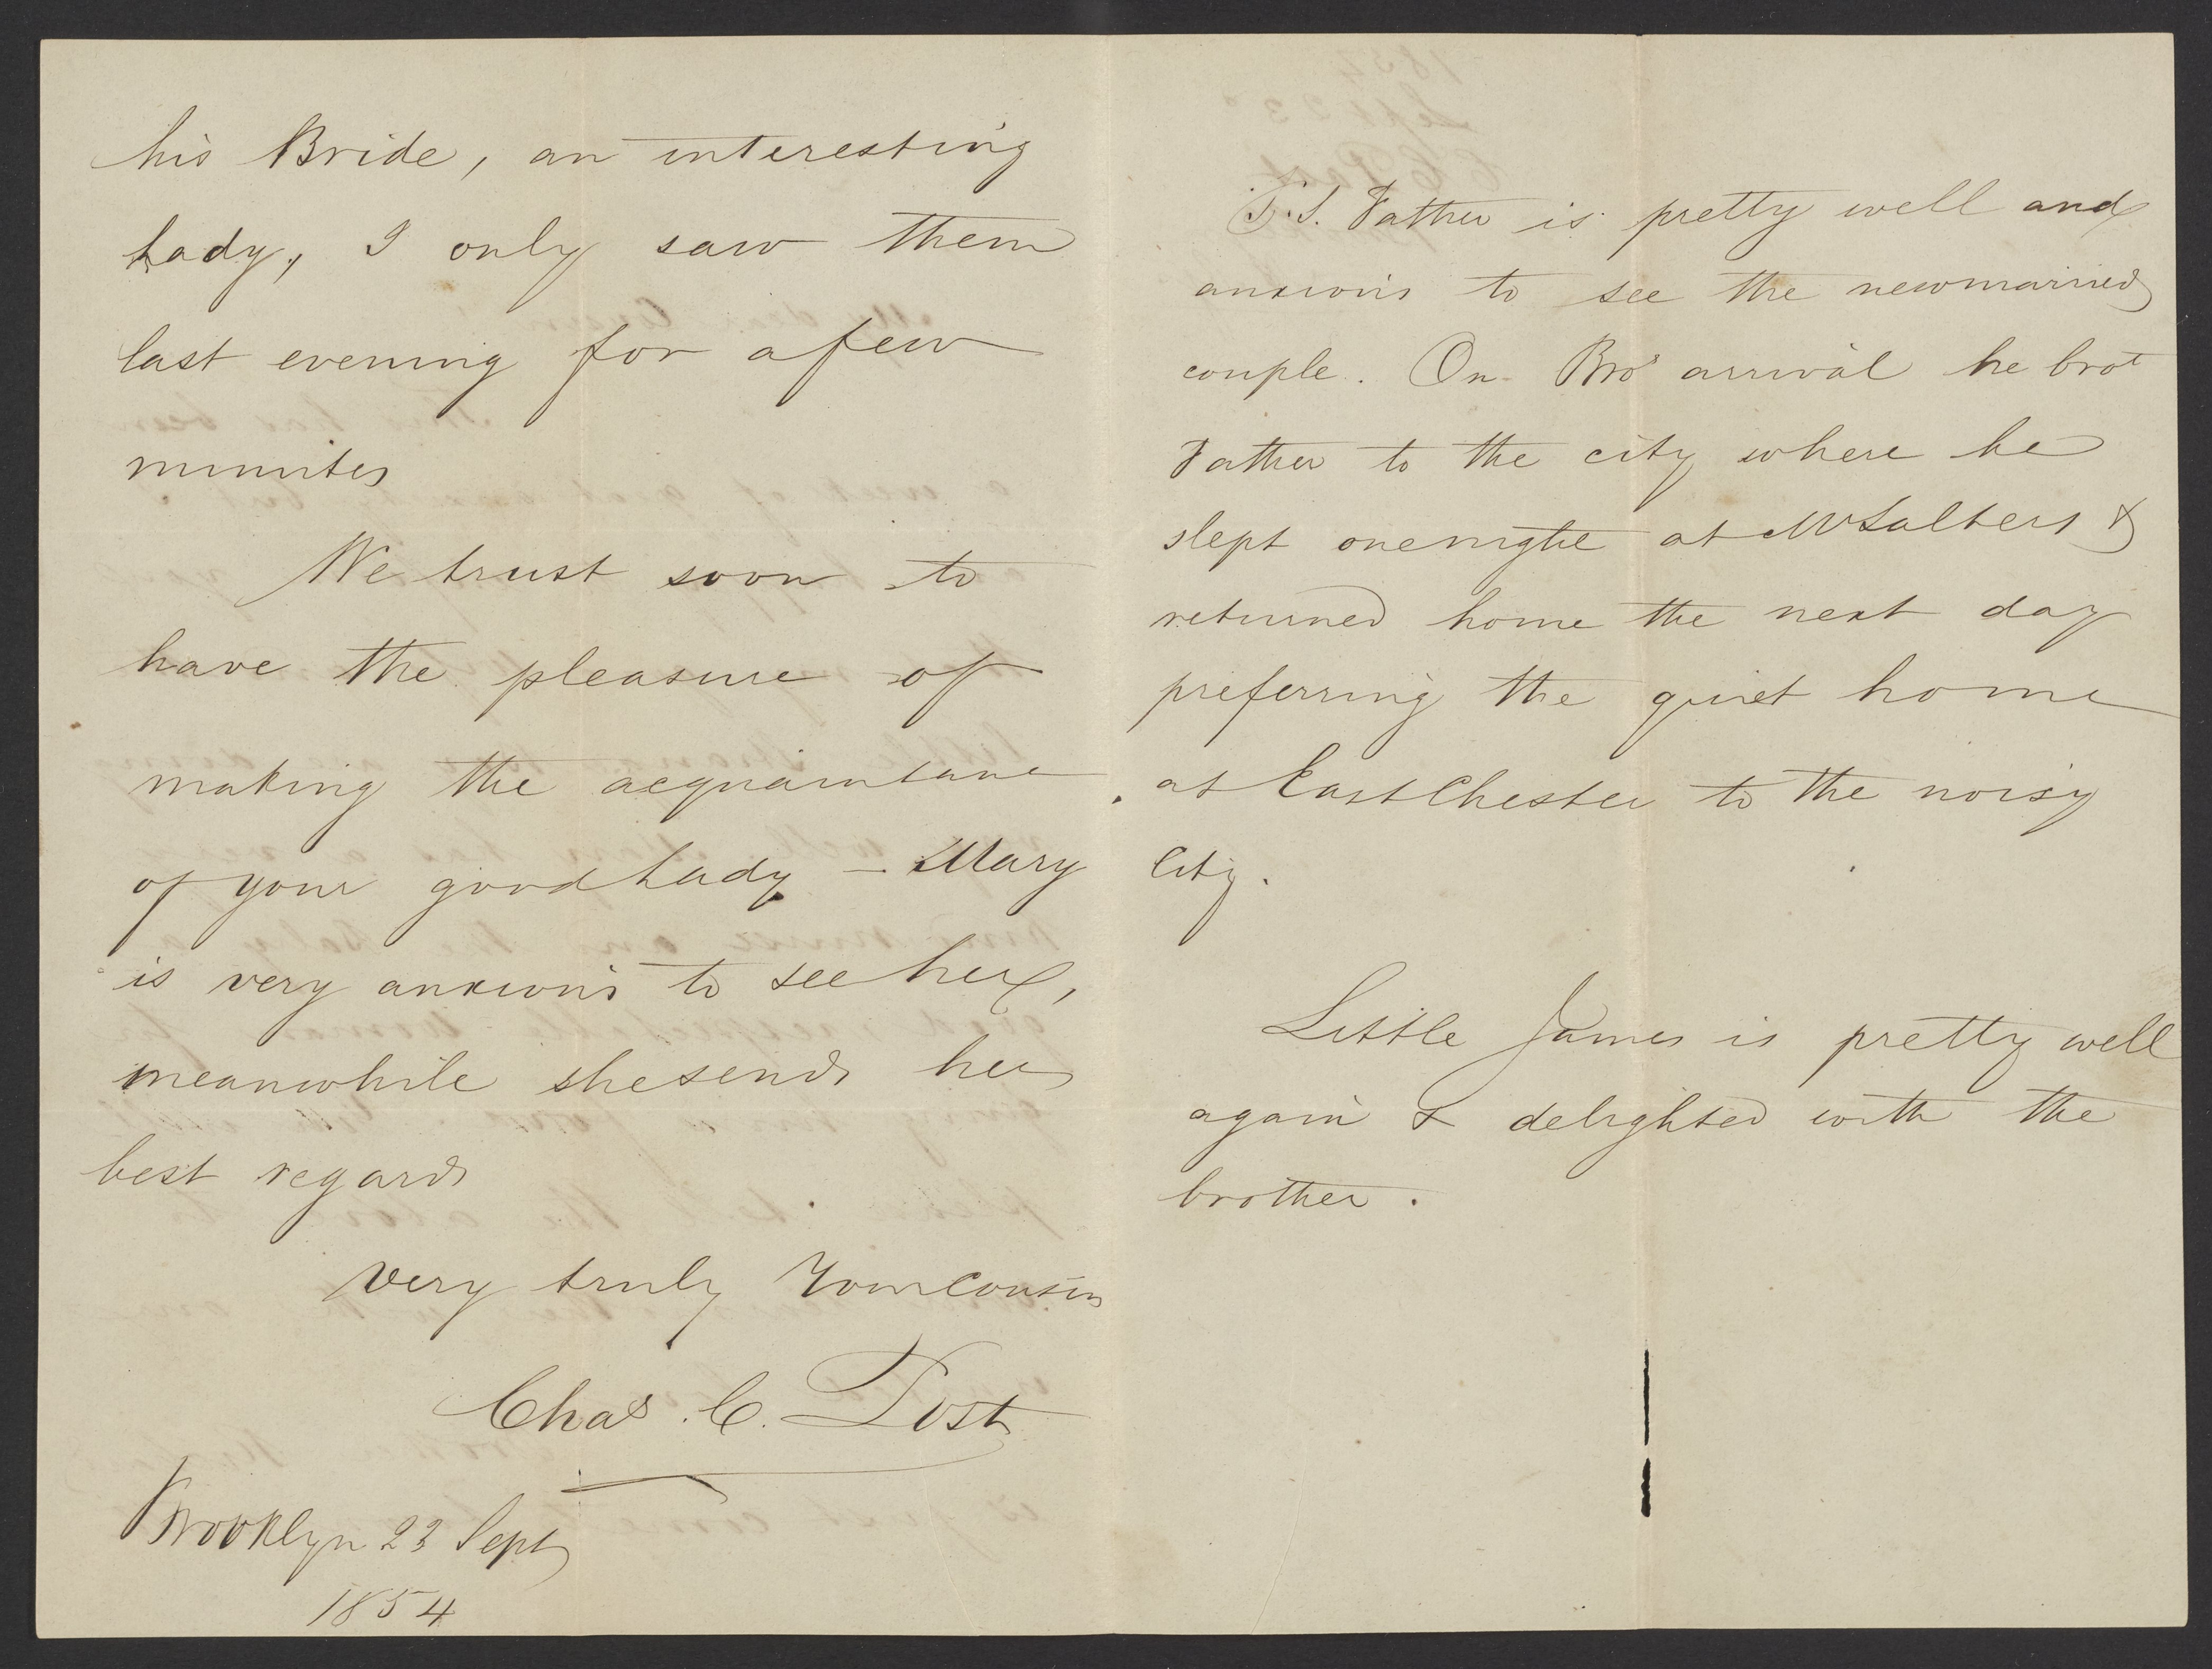 his Bride, an interesting
Lady, I only saw them
last evening for a few
minutes
We trust soon to
have the pleasure of
making the acquaintance
of your good Lady – Mary
is very anxious to see her,
meanwhile she sends her
best regards
Very truly Your Cousin
Chas. C. Post
Brooklyn 23 Sept
1854
P.S. Father is pretty well and
anxious to see the newmarried
couple. On Bro's arrival he brot
Father to the city where he
slept one night at &
returned home the next day
preferring the quiet home
at East Chester to the noisy
City.
Little James is pretty well
again & delighted with the
brother.